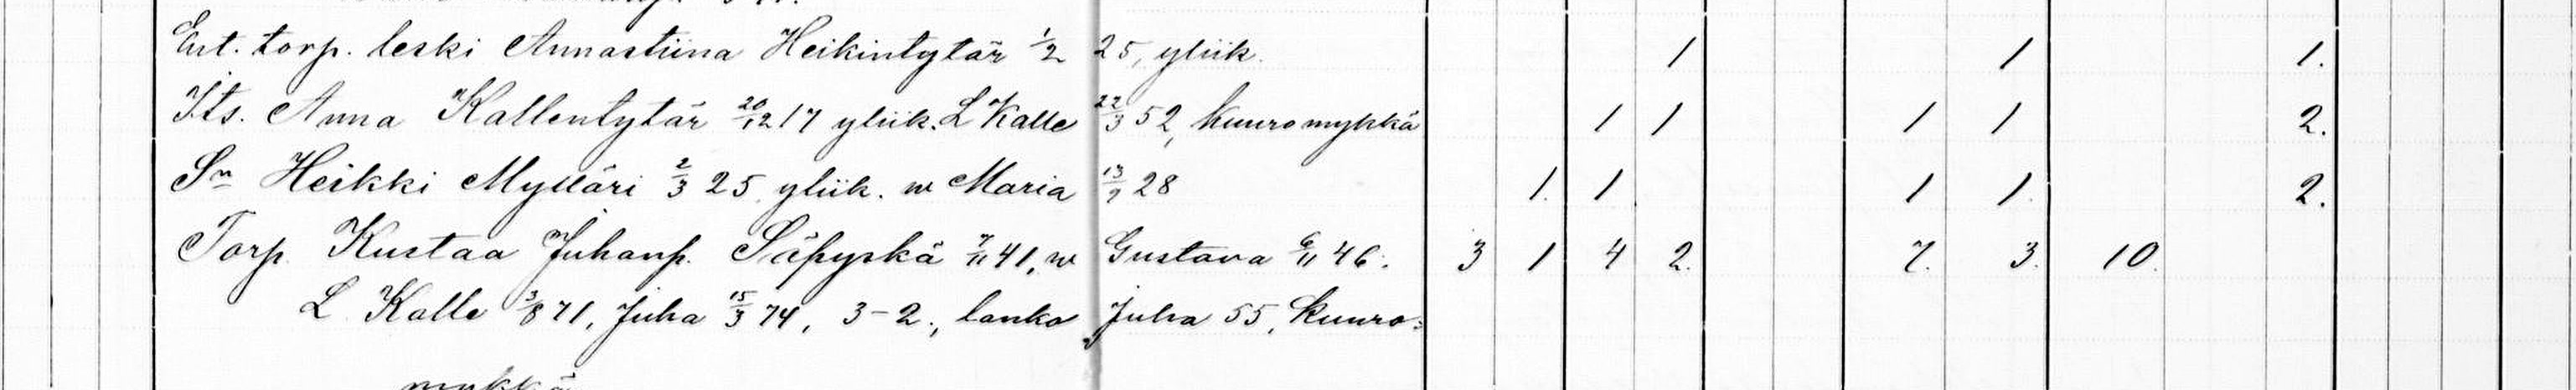 Ent. torp. leski Annastiina Heikintytär 1/2 25, yliik. 1 1 1.
Its. Anna Kallentytär 20/12 17 yliik. L Kalle 22/3 52, kuuromykkä 1 1 1 1 2.
Sn Heikki Mylläri 2/3 25, yliik. w Maria 13/9 28 1. 1 1 1. 2.
Torp. Kustaa Juhanp. Säpyskä 7/11 41, w Gustava 6/11 46. 3 1 4 2. 7. 3. 10.
L Kalle 3/8 71, Juha 15/3 74, 3-2., lanko Juha 55, kuuro-
mykkä